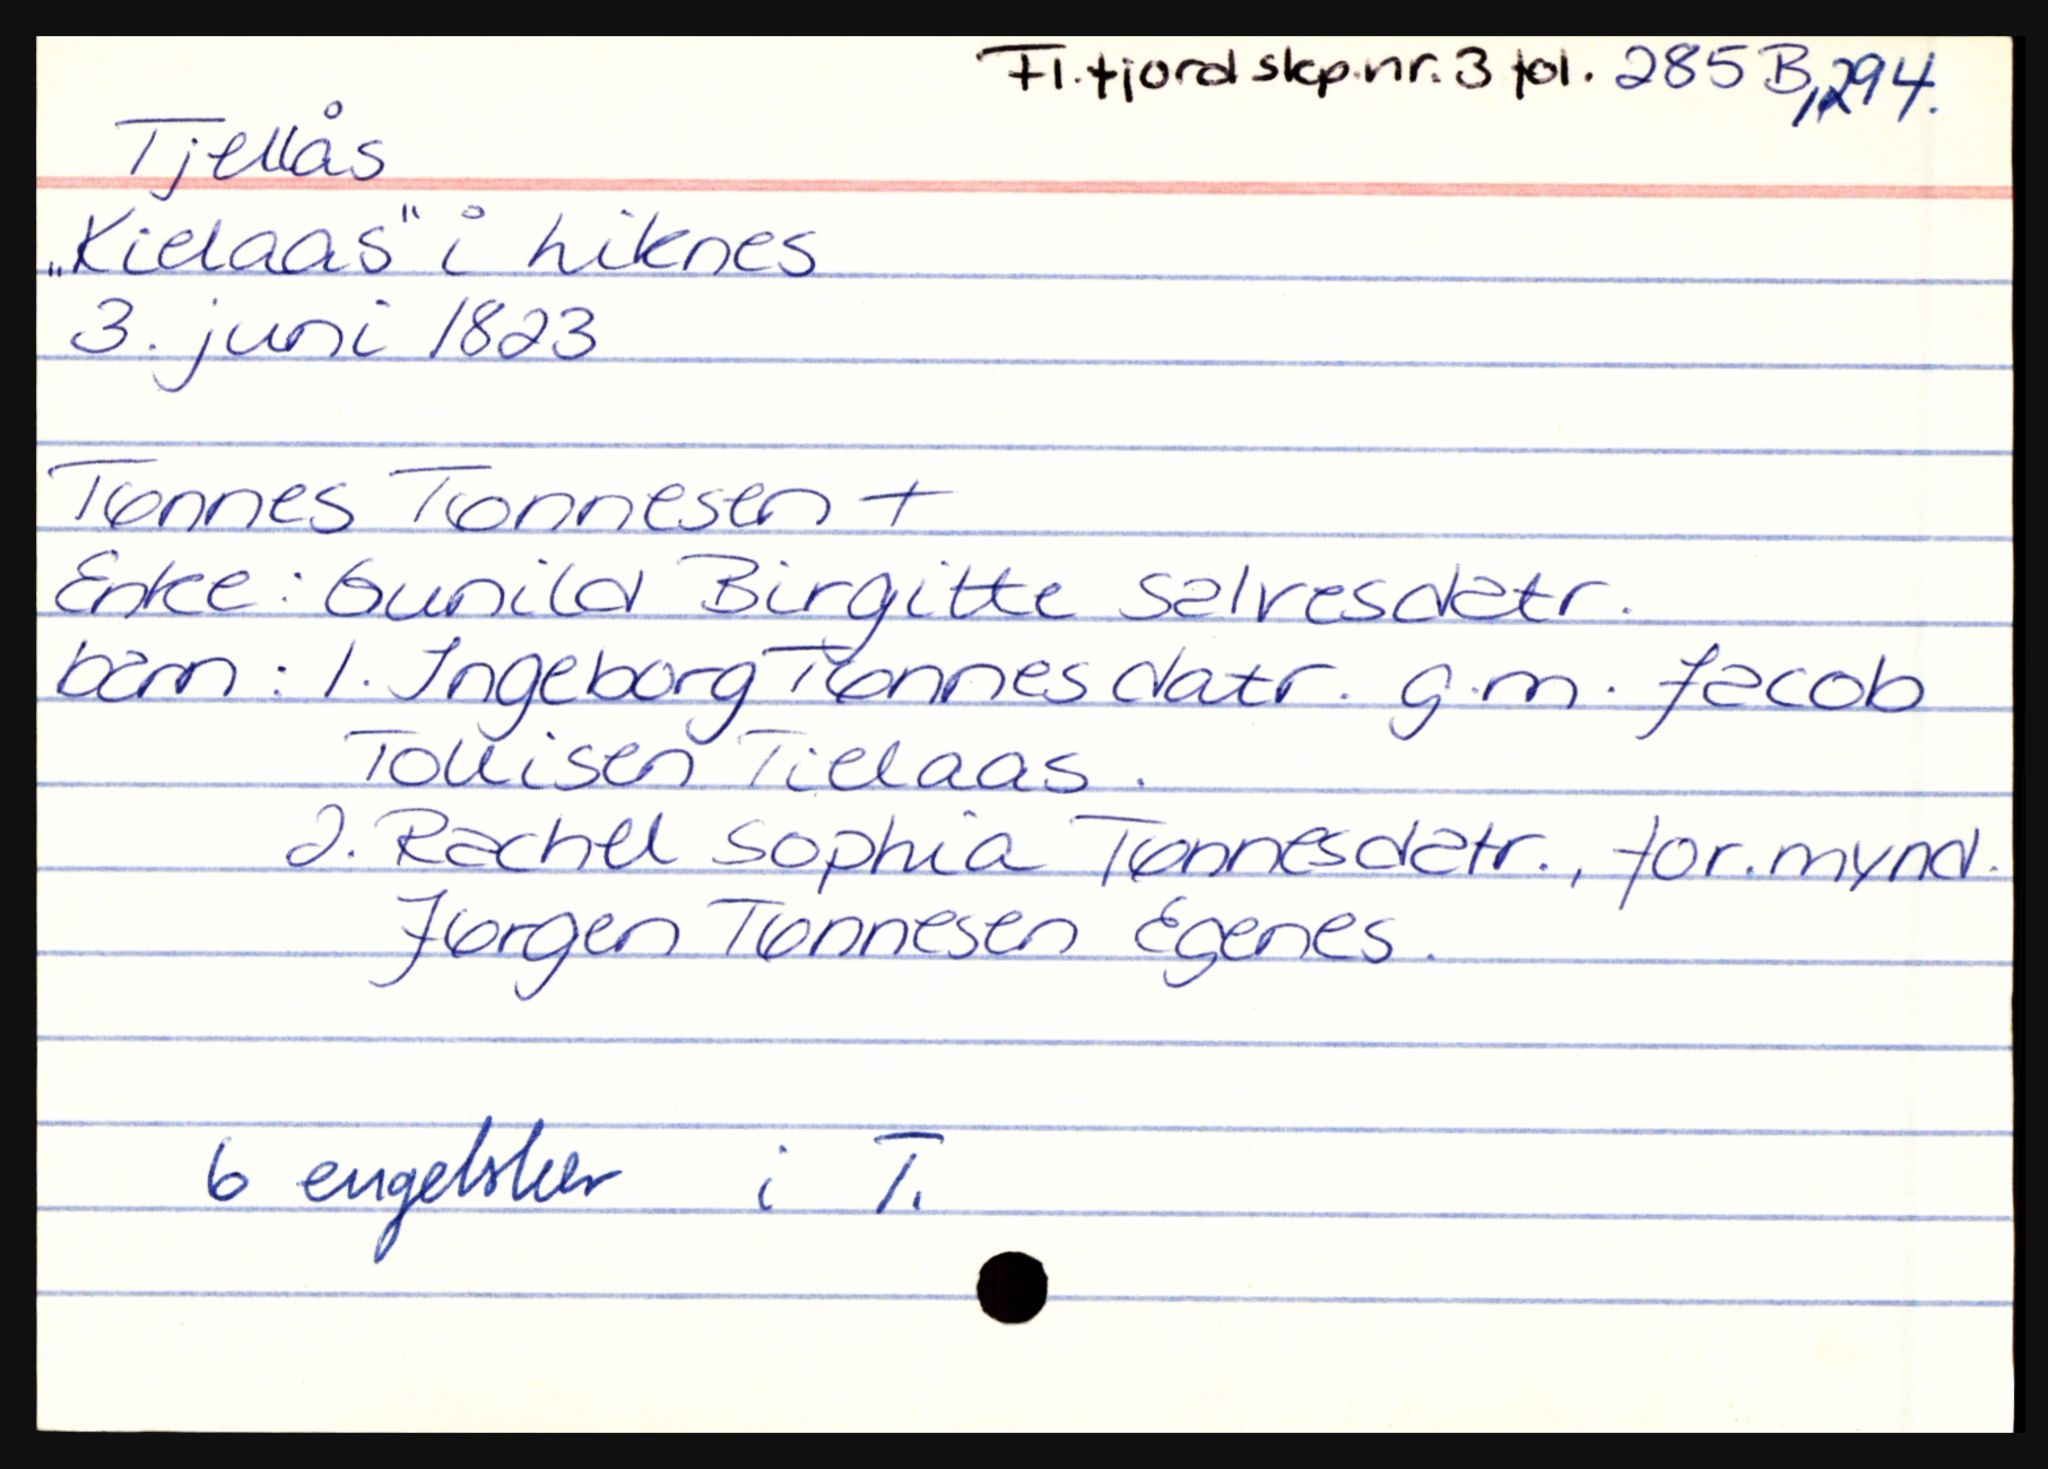 Fl.fjord skp.nr. 3 fol. 285B, 294.
Tjellås
„Kielaas" i Liknes
3. juni 1823
Tønnes Tønnesen +
Enke: Gunild Birgitte Salvesdatr.
barn: 1. Ingeborg Tønnesdatr. g.m. Jacob
Tollisen Tielaas.
2. Rachel Sophia Tønnesdatr., for.mynd.
Jørgen Tønnesen Egenes.
6 engelsker i T.